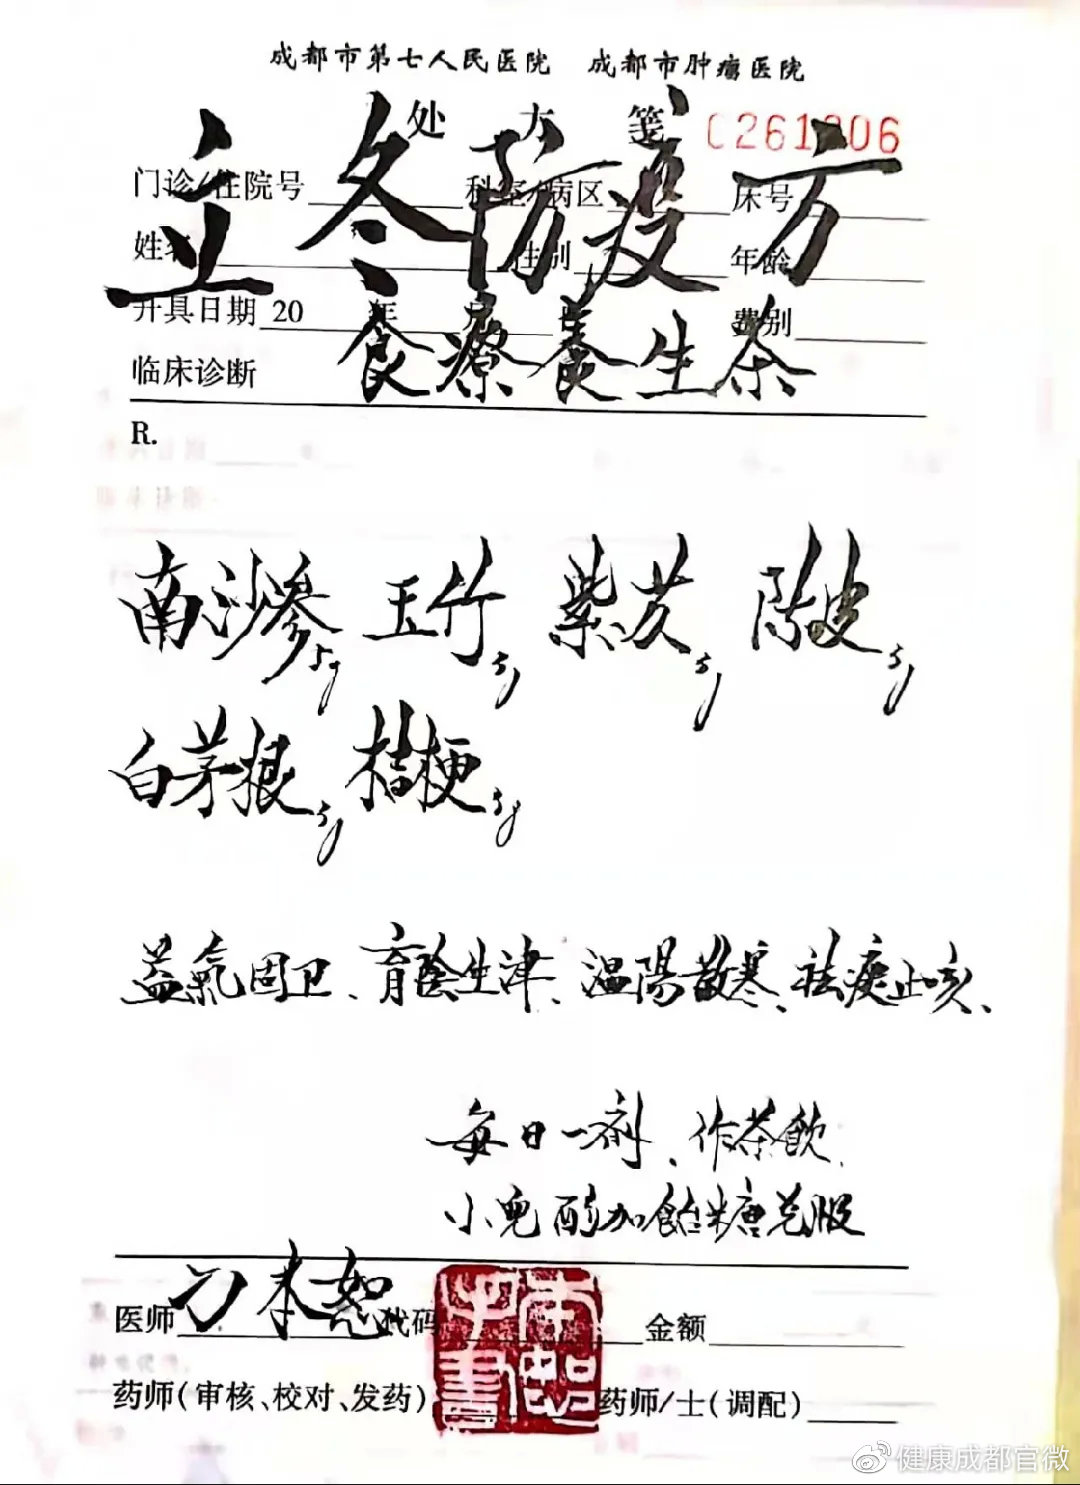 成都市第七人民医院 成都市肿瘤医院
处方笺
立冬防疫方
门诊/住院号 科室/病区 床号
姓名 性别 年龄
开具日期 20 年 月 日 费别
食療養生茶
临床诊断
R.
南沙參5g 玉竹5g 紫苏5g 陈皮5g
白茅根5g 桔梗5g
益氣固卫、育陰生津、温陽散寒、祛痰止咳、
每日一剂、作茶飲
小兒酌加飴糖兑服
医师 刁本恕 代码 金额
药师(审核、校对、发药) 药师/士(调配)
健康成都官微